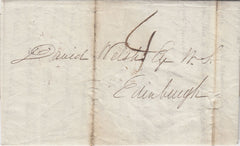 David Welsh Esq W. S.
Edinburgh